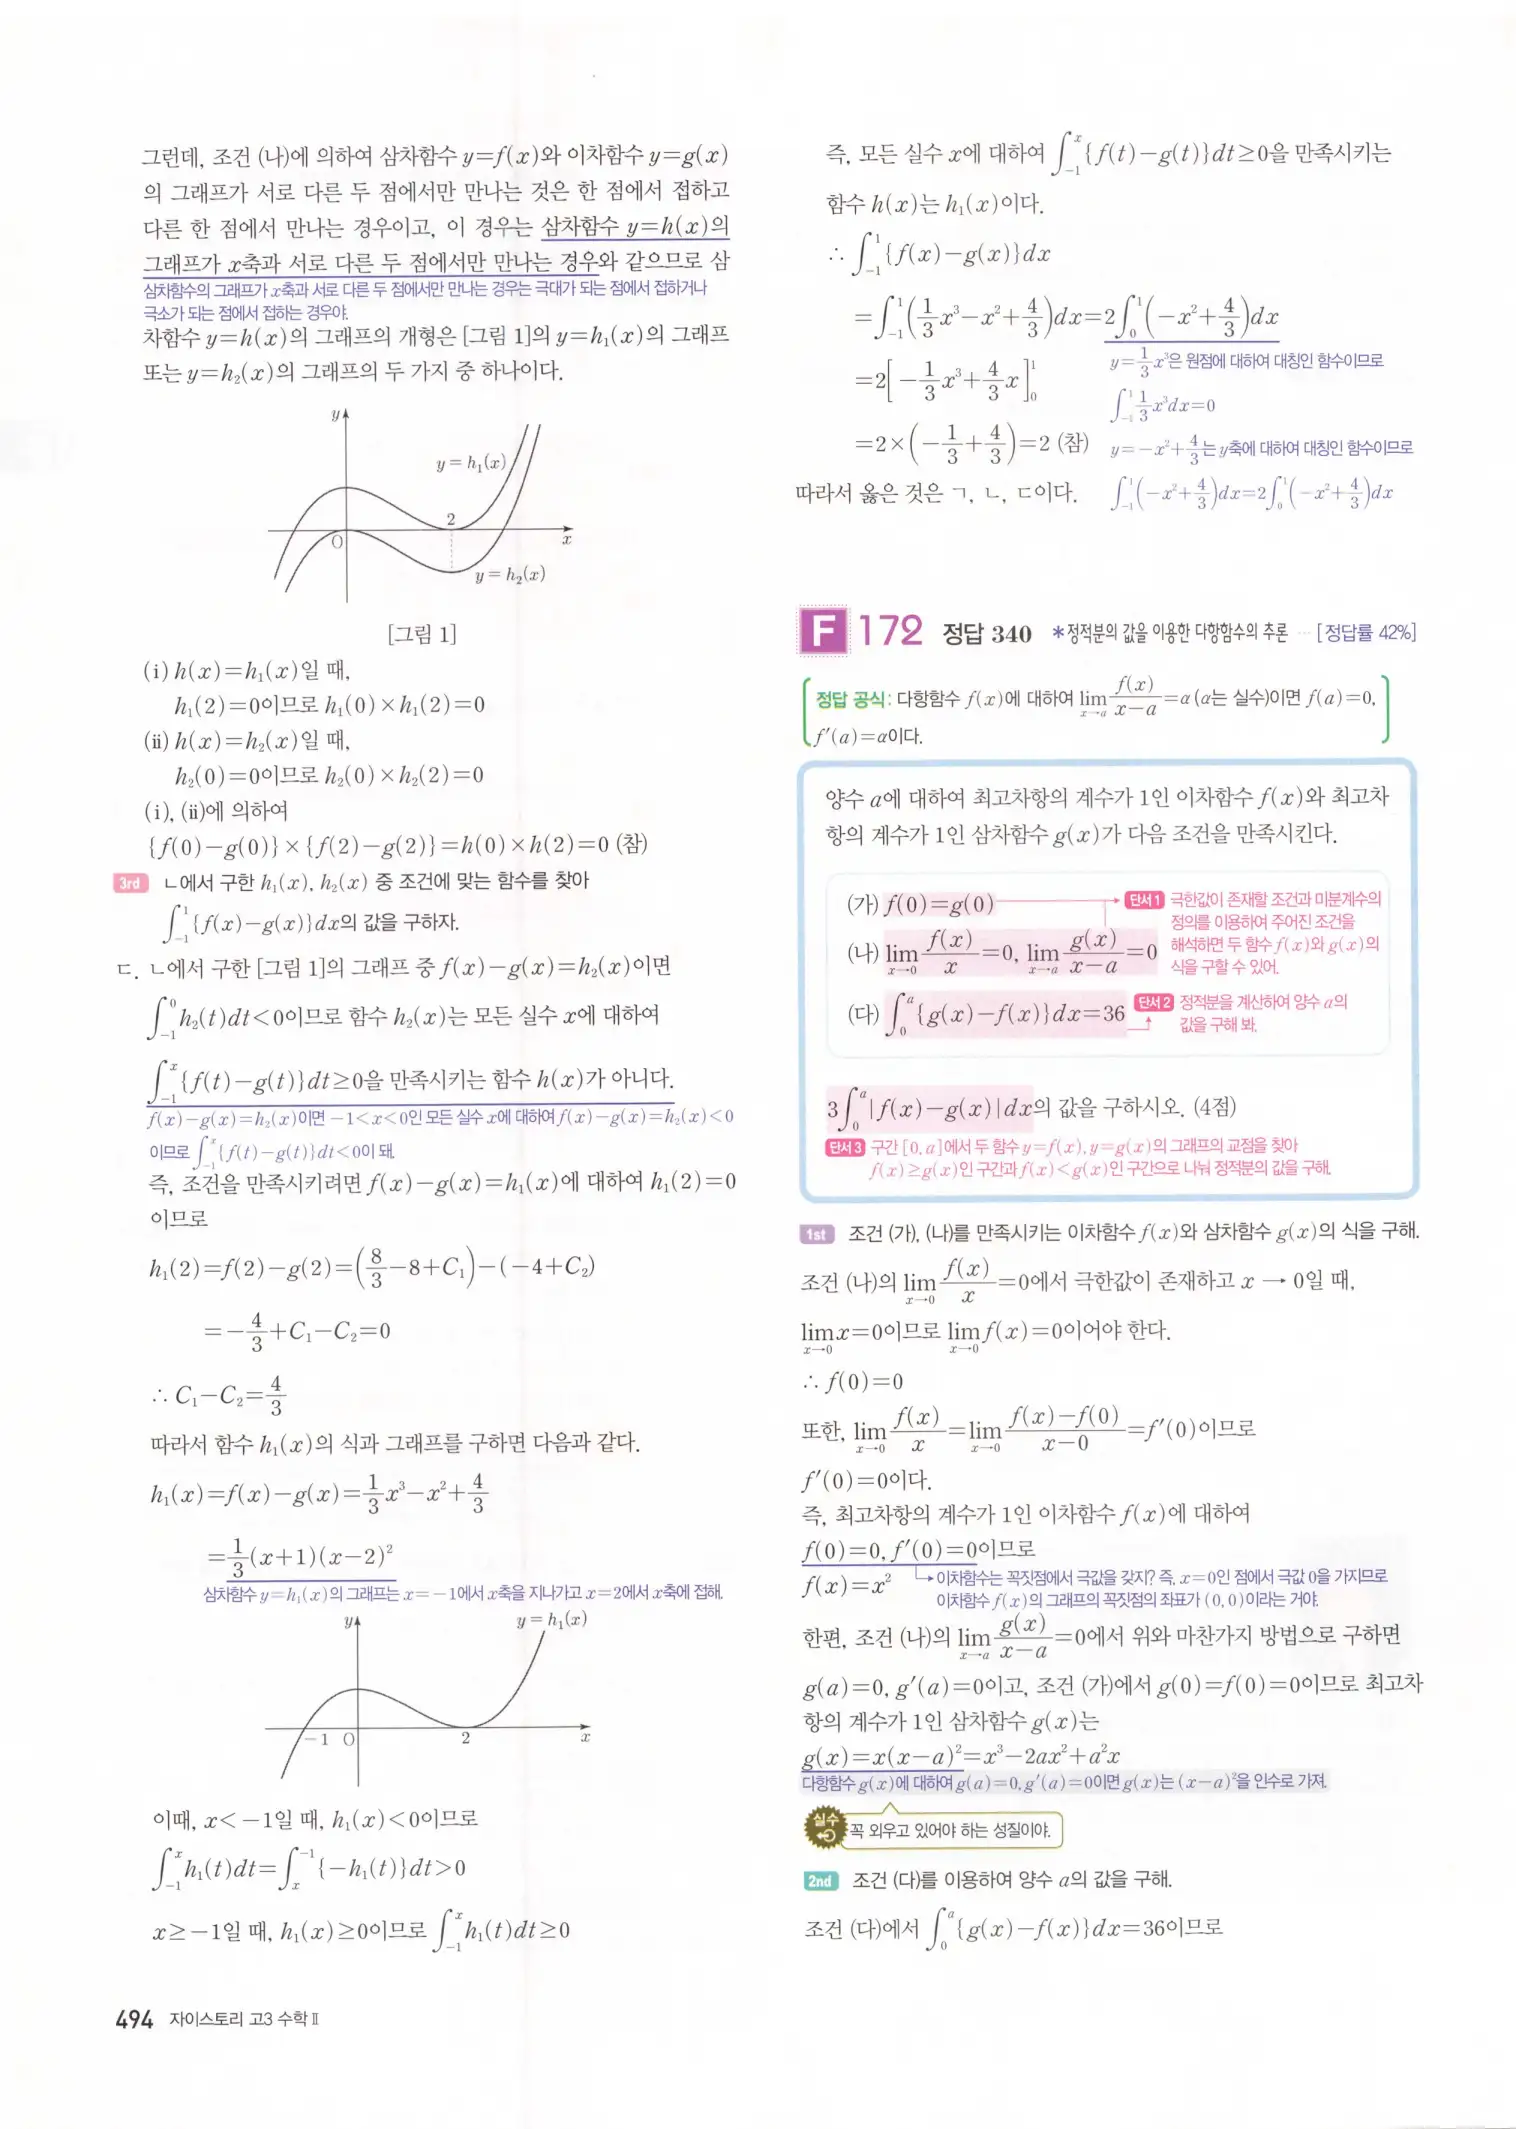 그런데, 조건 (나)에 의하여 삼차함수 y=f(x)와 이차함수 y=g(x)
의 그래프가 서로 다른 두 점에서만 만나는 것은 한 점에서 접하고
다른 한 점에서 만나는 경우이고, 이 경우는 삼차함수 y=h(x)의
그래프가 x축과 서로 다른 두 점에서만 만나는 경우와 같으므로 삼
삼차함수의 그래프가 x축과 서로 다른 두 점에서만 만나는 경우는 극대가 되는 점에서 접하거나
극소가 되는 점에서 접하는 경우야.
차함수 y=h(x)의 그래프의 개형은 [그림 1]의 y=h₁(x)의 그래프
또는 y=h₂(x)의 그래프의 두 가지 중 하나이다.
y
y=h₁(x)
2
O
x
y=h₂(x)
[그림 1]
(ⅰ) h(x)=h₁(x)일 때,
h₁(2)=0이므로 h₁(0)×h₁(2)=0
(ⅱ) h(x)=h₂(x)일 때,
h₂(0)=0이므로 h₂(0)×h₂(2)=0
(ⅰ), (ⅱ)에 의하여
{f(0)-g(0)}×{f(2)-g(2)}=h(0)×h(2)=0 (참)
3rd ㄴ에서 구한 h₁(x), h₂(x) 중 조건에 맞는 함수를 찾아
∫₋₁¹{f(x)-g(x)}dx의 값을 구하자.
ㄷ. ㄴ에서 구한 [그림 1]의 그래프 중 f(x)-g(x)=h₂(x)이면
∫₋₁⁰h₂(t)dt<0이므로 함수 h₂(x)는 모든 실수 x에 대하여
∫₋₁ˣ{f(t)-g(t)}dt≥0을 만족시키는 함수 h(x)가 아니다.
f(x)-g(x)=h₂(x)이면 -1<x<0인 모든 실수 x에 대하여 f(x)-g(x)=h₂(x)<0
이므로 ∫₋₁ˣ{f(t)-g(t)}dt<0이 돼.
즉, 조건을 만족시키려면 f(x)-g(x)=h₁(x)에 대하여 h₁(2)=0
이므로
h₁(2)=f(2)-g(2)=(8/3-8+C₁)-(-4+C₂)
=-4/3+C₁-C₂=0
∴ C₁-C₂=4/3
따라서 함수 h₁(x)의 식과 그래프를 구하면 다음과 같다.
h₁(x)=f(x)-g(x)=1/3x³-x²+4/3
=1/3(x+1)(x-2)²
삼차함수 y=h₁(x)의 그래프는 x=-1에서 x축을 지나가고 x=2에서 x축에 접해.
y
y=h₁(x)
-1
O
2
x
이때, x<-1일 때, h₁(x)<0이므로
∫₋₁ˣh₁(t)dt=∫ₓ⁻¹{-h₁(t)}dt>0
x≥-1일 때, h₁(x)≥0이므로 ∫₋₁ˣh₁(t)dt≥0
494 자이스토리 고3 수학Ⅱ
즉, 모든 실수 x에 대하여 ∫₋₁ˣ{f(t)-g(t)}dt≥0을 만족시키는
함수 h(x)는 h₁(x)이다.
∴ ∫₋₁¹{f(x)-g(x)}dx
=∫₋₁¹(1/3x³-x²+4/3)dx=2∫₀¹(-x²+4/3)dx
y=1/3x³은 원점에 대하여 대칭인 함수이므로
=2[-1/3x³+4/3x]₀¹
∫₋₁¹1/3x³dx=0
=2×(-1/3+4/3)=2 (참)
y=-x²+4/3는 y축에 대하여 대칭인 함수이므로
따라서 옳은 것은 ㄱ, ㄴ, ㄷ이다.
∫₋₁¹(-x²+4/3)dx=2∫₀¹(-x²+4/3)dx
F 172 정답 340 *정적분의 값을 이용한 다항함수의 추론 ··· [정답률 42%]
정답 공식: 다항함수 f(x)에 대하여 lim x→a f(x)/(x-a)=α (α는 실수)이면 f(a)=0,
f′(a)=α이다.
양수 a에 대하여 최고차항의 계수가 1인 이차함수 f(x)와 최고차
항의 계수가 1인 삼차함수 g(x)가 다음 조건을 만족시킨다.
(가) f(0)=g(0)
단서1 극한값이 존재할 조건과 미분계수의
정의를 이용하여 주어진 조건을
해석하면 두 함수 f(x)와 g(x)의
식을 구할 수 있어.
(나) lim x→0 f(x)/x=0, lim x→a g(x)/(x-a)=0
(다) ∫₀ᵃ{g(x)-f(x)}dx=36
단서2 정적분을 계산하여 양수 a의
값을 구해 봐.
3∫₀ᵃ|f(x)-g(x)|dx의 값을 구하시오. (4점)
단서3 구간 [0, a]에서 두 함수 y=f(x), y=g(x)의 그래프의 교점을 찾아
f(x)≥g(x)인 구간과 f(x)<g(x)인 구간으로 나눠 정적분의 값을 구해.
1st 조건 (가), (나)를 만족시키는 이차함수 f(x)와 삼차함수 g(x)의 식을 구해.
조건 (나)의 lim x→0 f(x)/x=0에서 극한값이 존재하고 x → 0일 때,
lim x→0 x=0이므로 lim x→0 f(x)=0이어야 한다.
∴ f(0)=0
또한, lim x→0 f(x)/x=lim x→0 (f(x)-f(0))/(x-0)=f′(0)이므로
f′(0)=0이다.
즉, 최고차항의 계수가 1인 이차함수 f(x)에 대하여
f(0)=0, f′(0)=0이므로
f(x)=x²
이차함수는 꼭짓점에서 극값을 갖지? 즉, x=0인 점에서 극값 0을 가지므로
이차함수 f(x)의 그래프의 꼭짓점의 좌표가 (0, 0)이라는 거야.
한편, 조건 (나)의 lim x→a g(x)/(x-a)=0에서 위와 마찬가지 방법으로 구하면
g(a)=0, g′(a)=0이고, 조건 (가)에서 g(0)=f(0)=0이므로 최고차
항의 계수가 1인 삼차함수 g(x)는
g(x)=x(x-a)²=x³-2ax²+a²x
다항함수 g(x)에 대하여 g(a)=0, g′(a)=0이면 g(x)는 (x-a)²을 인수로 가져.
실수 꼭 외우고 있어야 하는 성질이야.
2nd 조건 (다)를 이용하여 양수 a의 값을 구해.
조건 (다)에서 ∫₀ᵃ{g(x)-f(x)}dx=36이므로